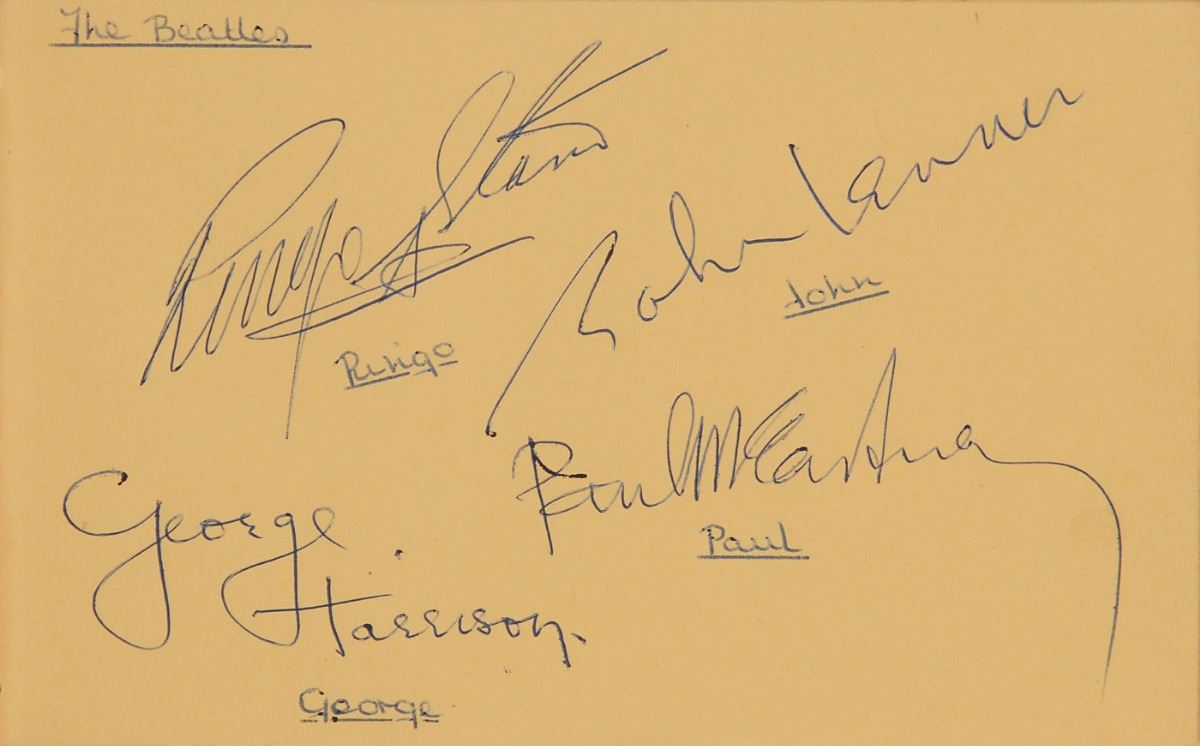 The Beatles
Ringo Starr
John Lennon
John
Ringo
Paul McCartney
Paul
George
Harrison
George